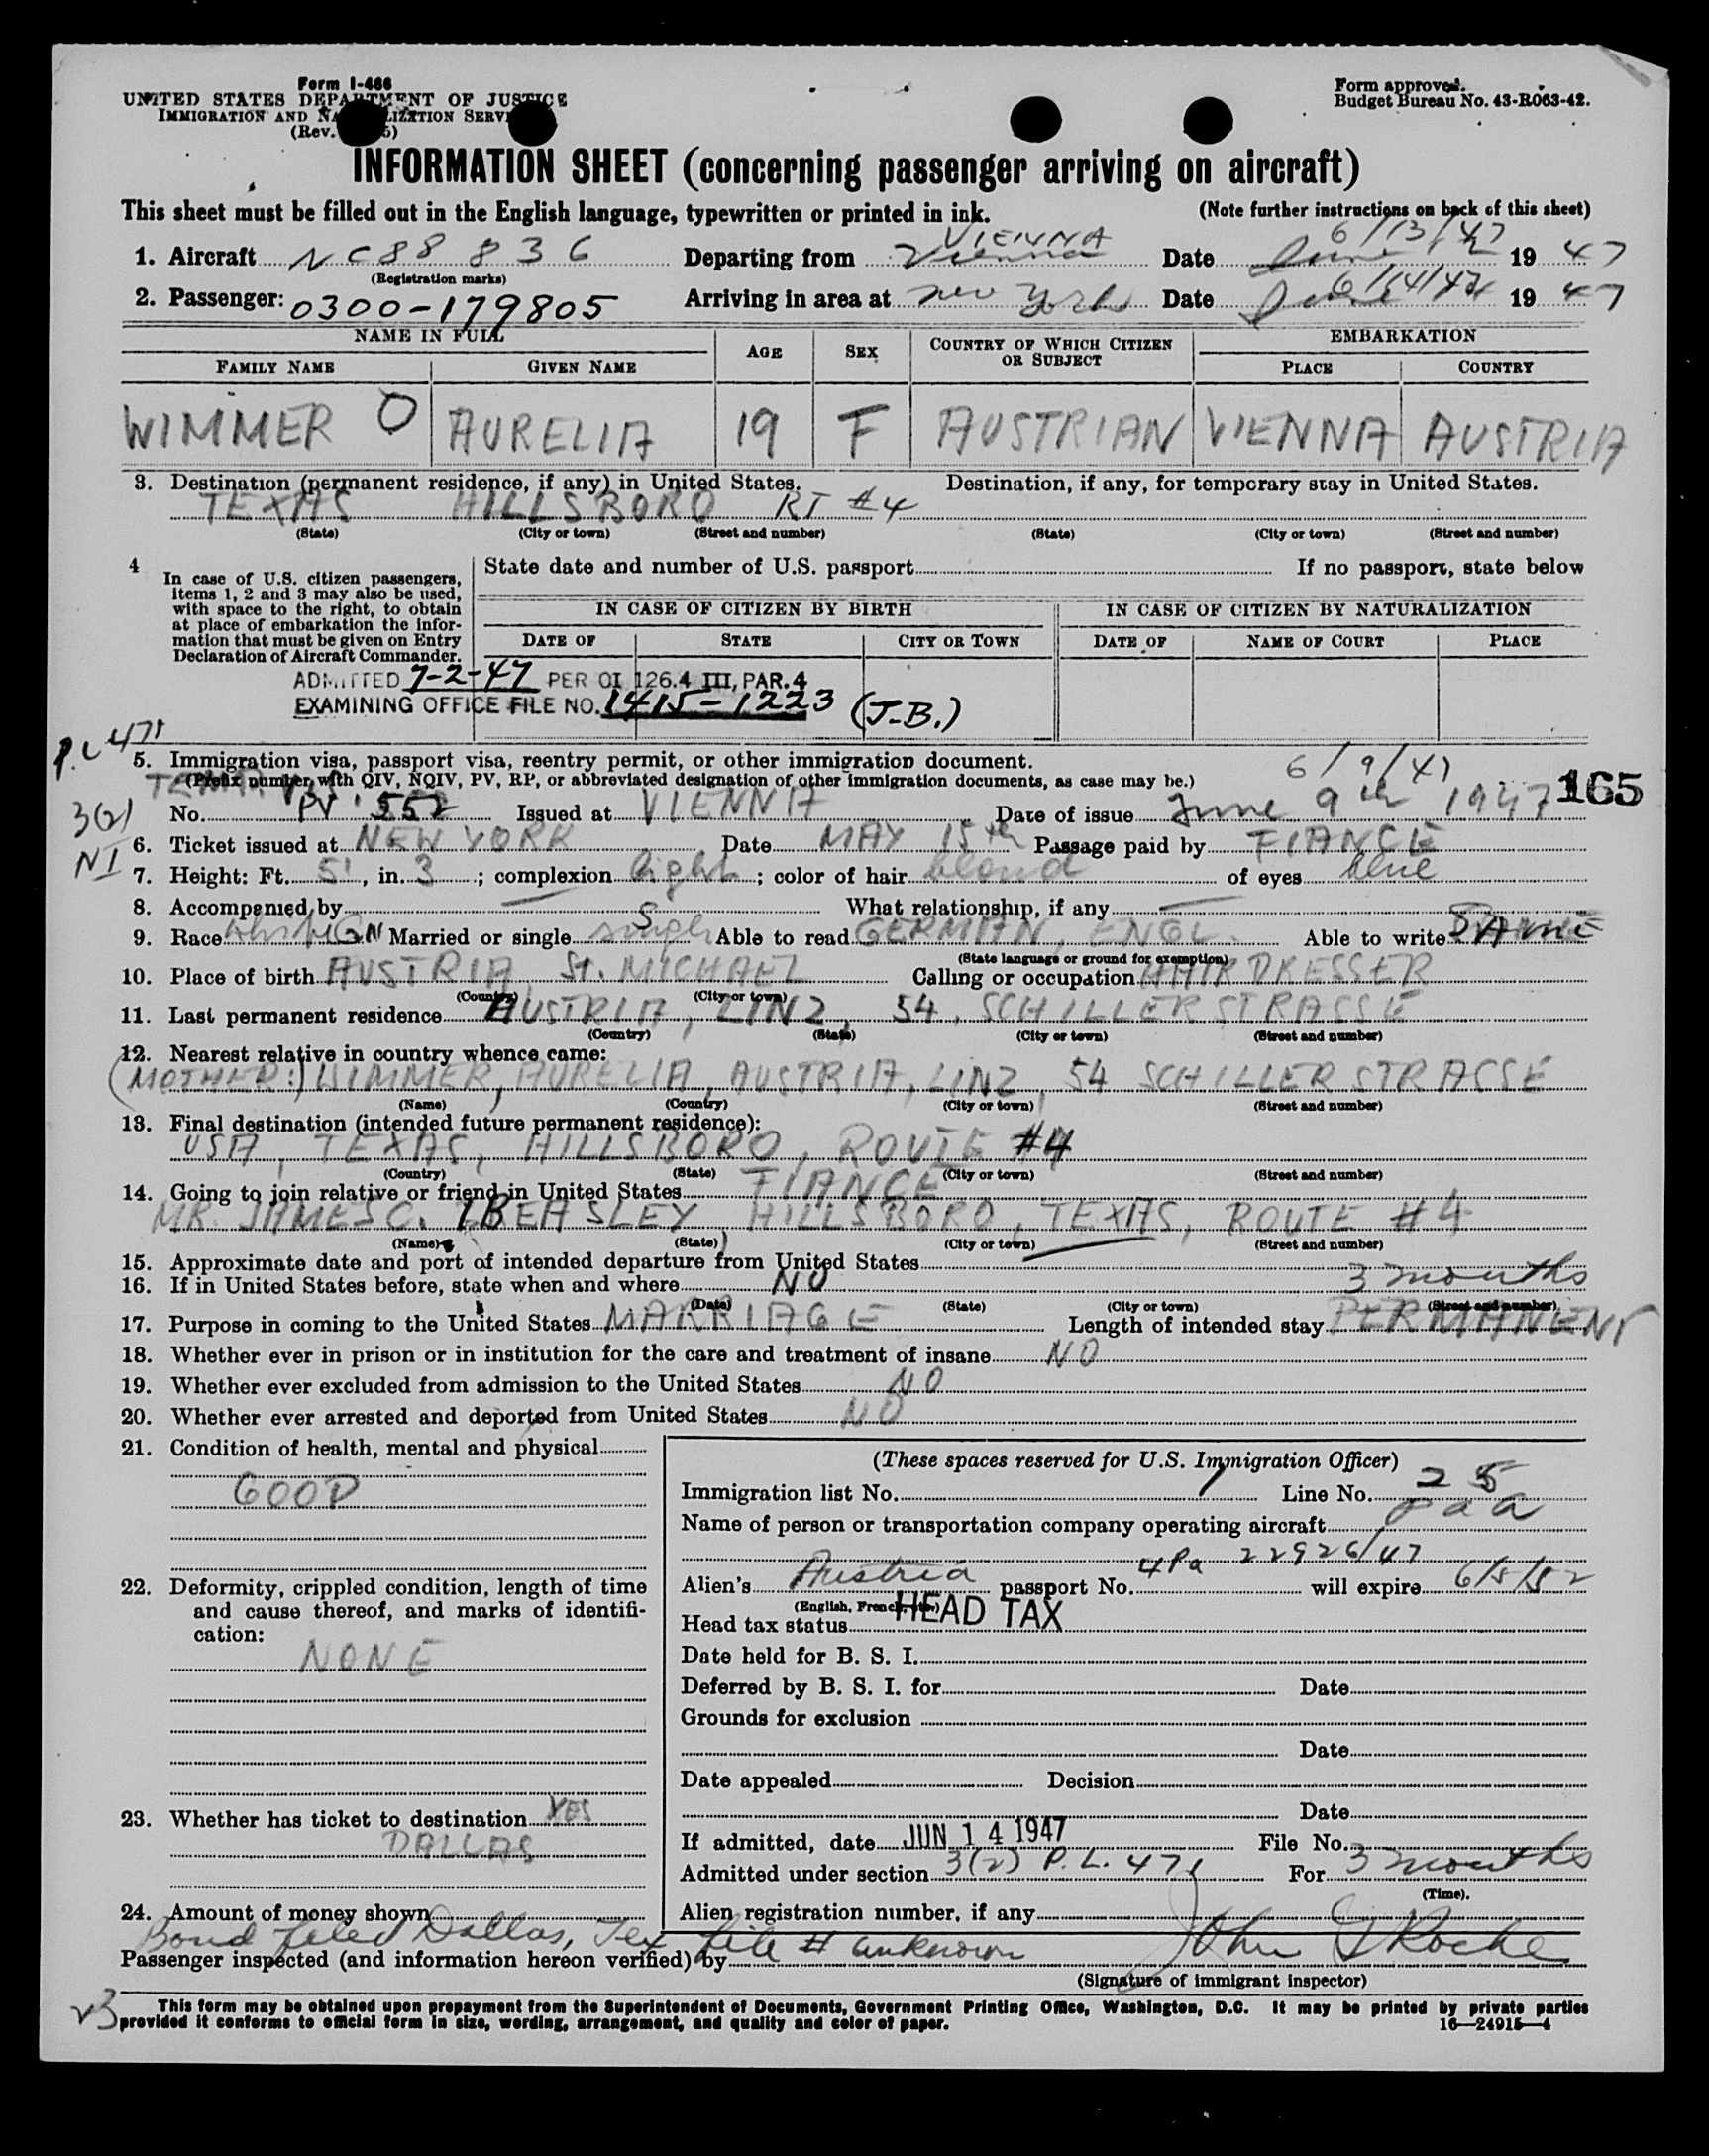 Form I-466
UNITED STATES DEPARTMENT OF JUSTICE
IMMIGRATION AND NATURALIZATION SERVICE
(Rev. 5)
Form approved.
Budget Bureau No. 43-R063-42.
INFORMATION SHEET (concerning passenger arriving on aircraft)
This sheet must be filled out in the English language, typewritten or printed in ink. (Note further instructions on back of this sheet)
VIENNA 6/13/47
1. Aircraft NC88836 Departing from Vienna Date June 19 47
(Registration marks)
6/14/47
2. Passenger: 0300-179805 Arriving in area at New York Date June 19 47
NAME IN FULL AGE SEX COUNTRY OF WHICH CITIZEN OR SUBJECT EMBARKATION
FAMILY NAME GIVEN NAME PLACE COUNTRY
WIMMER O AURELIA 19 F AUSTRIAN VIENNA AUSTRIA
3. Destination (permanent residence, if any) in United States. Destination, if any, for temporary stay in United States.
TEXAS HILLSBORO RT #4
(State) (City or town) (Street and number) (State) (City or town) (Street and number)
4 In case of U.S. citizen passengers, items 1, 2 and 3 may also be used, with space to the right, to obtain at place of embarkation the information that must be given on Entry Declaration of Aircraft Commander.
State date and number of U.S. passport If no passport, state below
IN CASE OF CITIZEN BY BIRTH IN CASE OF CITIZEN BY NATURALIZATION
DATE OF STATE CITY OR TOWN DATE OF NAME OF COURT PLACE
ADMITTED 7-2-47 PER OI 126.4 III, PAR.4
EXAMINING OFFICE FILE NO. 1415-1223 (J.B.)
P.L 471
5. Immigration visa, passport visa, reentry permit, or other immigration document.
(Prefix number with QIV, NQIV, PV, RP, or abbreviated designation of other immigration documents, as case may be.) 6/9/47
3(2) No. PV 552 Issued at VIENNA Date of issue June 9th 1947 165
NI 6. Ticket issued at NEW YORK Date MAY 15th Passage paid by FIANCE
7. Height: Ft. 5', in. 3; complexion light; color of hair blond of eyes blue
8. Accompanied by — What relationship, if any —
9. Race white GN Married or single S single Able to read GERMAN, ENGL. Able to write SAME
(State language or ground for exemption)
10. Place of birth AUSTRIA St. MICHAEL Calling or occupation HAIRDRESSER
(Country) (City or town)
11. Last permanent residence AUSTRIA, LINZ, 54, SCHILLERSTRASSE
(Country) (State) (City or town) (Street and number)
12. Nearest relative in country whence came:
(MOTHER:) WIMMER, AURELIA, AUSTRIA, LINZ, 54 SCHILLERSTRASSE
(Name) (Country) (City or town) (Street and number)
13. Final destination (intended future permanent residence):
USA, TEXAS, HILLSBORO, ROUTE #4
(Country) (State) (City or town) (Street and number)
14. Going to join relative or friend in United States FIANCE
MR. JAMES C. BEASLEY, HILLSBORO, TEXAS, ROUTE #4
(Name) (State) (City or town) (Street and number)
15. Approximate date and port of intended departure from United States
16. If in United States before, state when and where NO 3 months
(Date) (State) (City or town) (Street and number)
17. Purpose in coming to the United States MARRIAGE Length of intended stay PERMANENT
18. Whether ever in prison or in institution for the care and treatment of insane NO
19. Whether ever excluded from admission to the United States NO
20. Whether ever arrested and deported from United States NO
21. Condition of health, mental and physical
GOOD
22. Deformity, crippled condition, length of time and cause thereof, and marks of identification:
NONE
23. Whether has ticket to destination YES
DALLAS
24. Amount of money shown
(These spaces reserved for U.S. Immigration Officer)
Immigration list No. 1 Line No. 25
Name of person or transportation company operating aircraft paa
Alien's Austria passport No. 4Pa 22926/47 will expire 6/5/52
(English, French, etc.)
Head tax status HEAD TAX
Date held for B. S. I.
Deferred by B. S. I. for Date
Grounds for exclusion
Date
Date appealed Decision
Date
If admitted, date JUN 14 1947 File No.
Admitted under section 3(2) P.L. 471 For 3 months
(Time).
Alien registration number, if any
Bond filed Dallas, Tex file # unknown
Passenger inspected (and information hereon verified) by John Roche
(Signature of immigrant inspector)
This form may be obtained upon prepayment from the Superintendent of Documents, Government Printing Office, Washington, D.C. It may be printed by private parties
provided it conforms to official form in size, wording, arrangement, and quality and color of paper. 16—24915-4